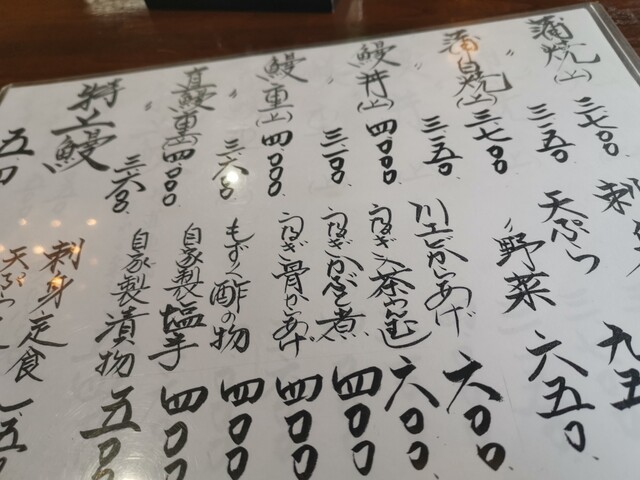 蒲焼(上) 三七〇〇
〃 三一五〇
蒲白焼(上) 三七〇〇
〃 三一五〇
鰻丼(上) 四〇〇〇
〃 三一〇〇
鰻重(上) 四〇〇〇
〃 三六〇〇
直鰻重(上) 四〇〇〇
〃 三六〇〇
特上鰻
五
刺身
九五
天ぷら
〃野菜 六五〇
川エビからあげ 六〇〇
うなぎ茶わんむし 六〇〇
うなぎかぶと煮 四〇〇
うなぎ骨からあげ 四〇〇
もずく酢の物 四〇〇
自家製塩辛 四〇〇
自家製漬物 五〇〇
刺身定食
天ぷら